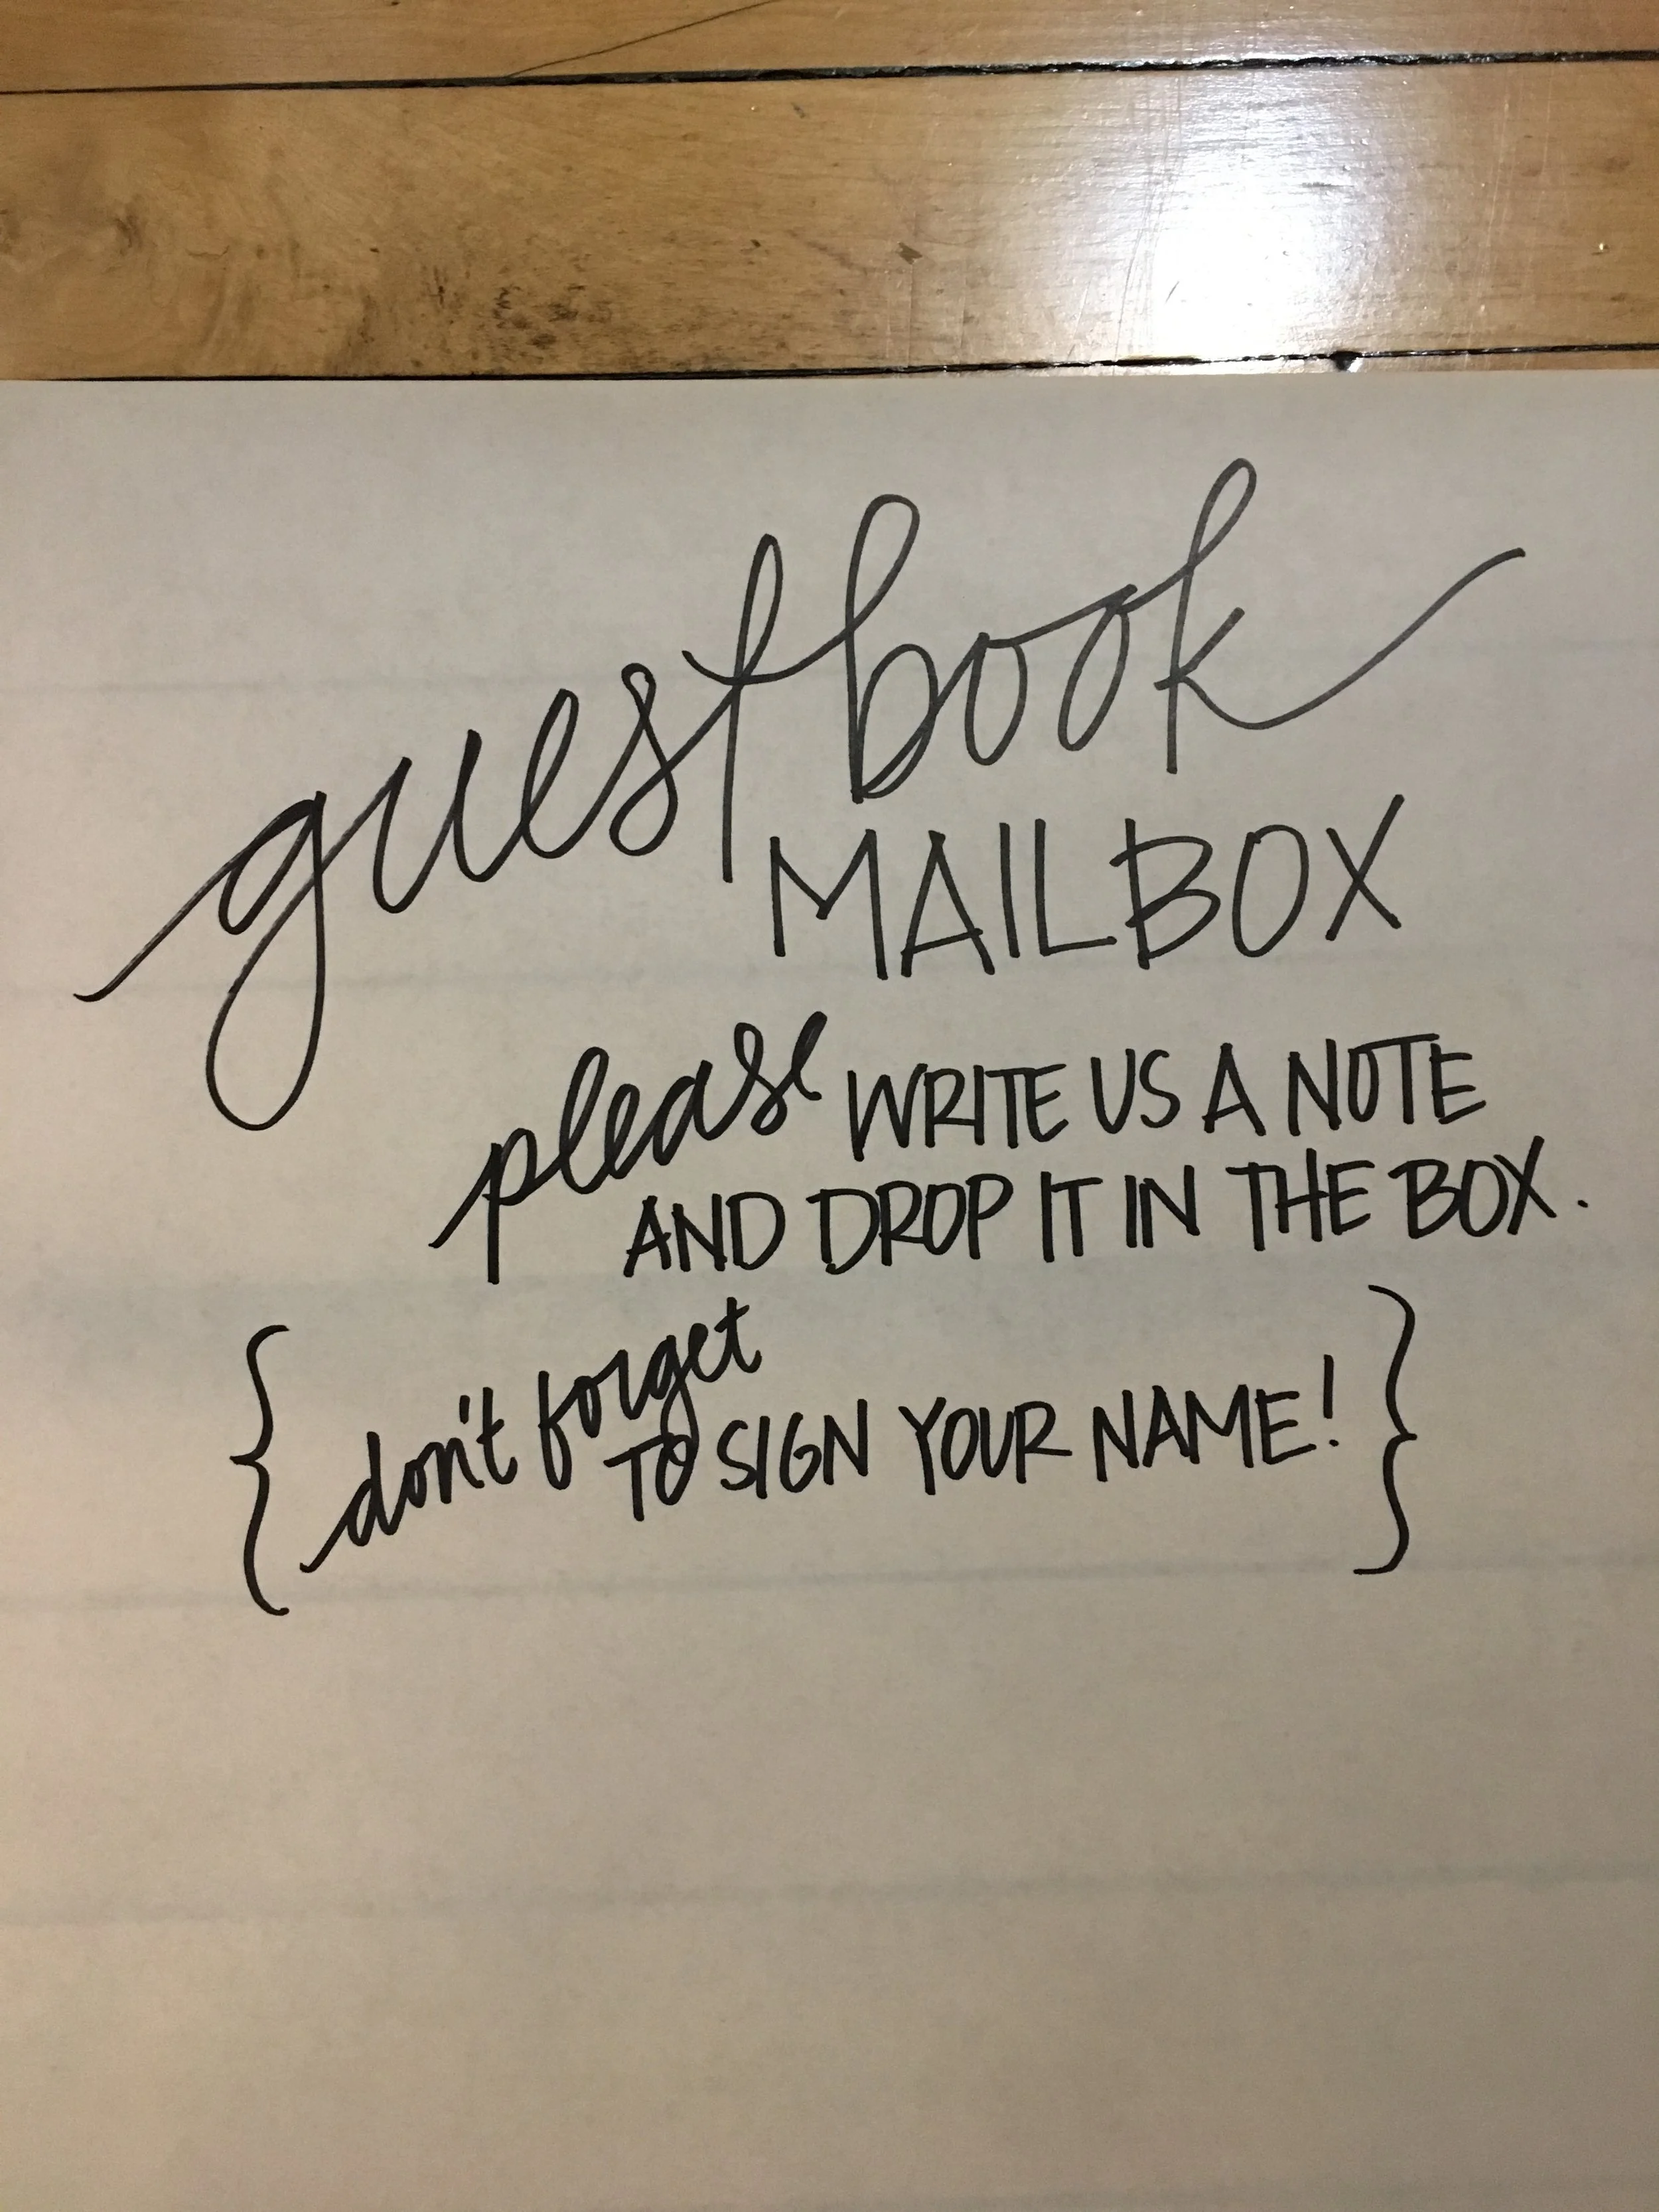 guestbook
MAILBOX
please WRITE US A NOTE
AND DROP IT IN THE BOX.
{ don't forget
TO SIGN YOUR NAME! }